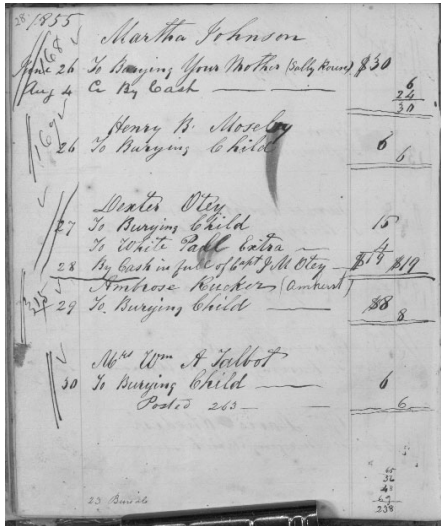 28 1855
168 Martha Johnson
June 26 To Burying Your Mother (Sally Rowen) $30
6
Aug 4 Cr By Cash 24
30
169 Henry B. Moseley
26 To Burying Child 6
6
Dexter Otey
27 To Burying Child 15
To White Pall Extra 4
28 By Cash in full of Capt J M Otey $19 $19
Ambrose Rucker (Amherst)
29 To Burying Child $8
8
Mrs Wm A Talbot
30 To Burying Child 6
Posted 263 6
23 Burials
238